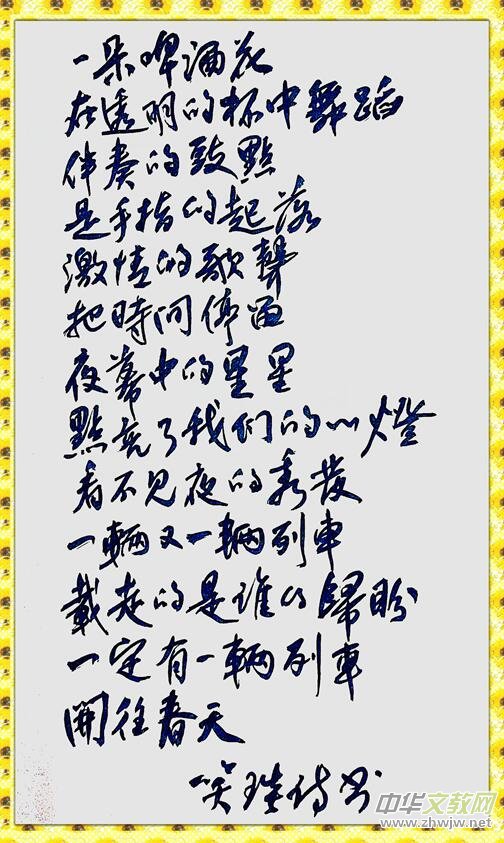 一朵啤酒花
在透明的杯中舞蹈
伴奏的鼓點
是手指的起落
激情的歌聲
把時间停留
夜幕中的星星
點亮了我们的心燈
看不见夜的秀发
一輛又一輛列車
載走的是谁的歸盼
一定有一輛列車
開往春天
中华文教网
www.zhwjw.net